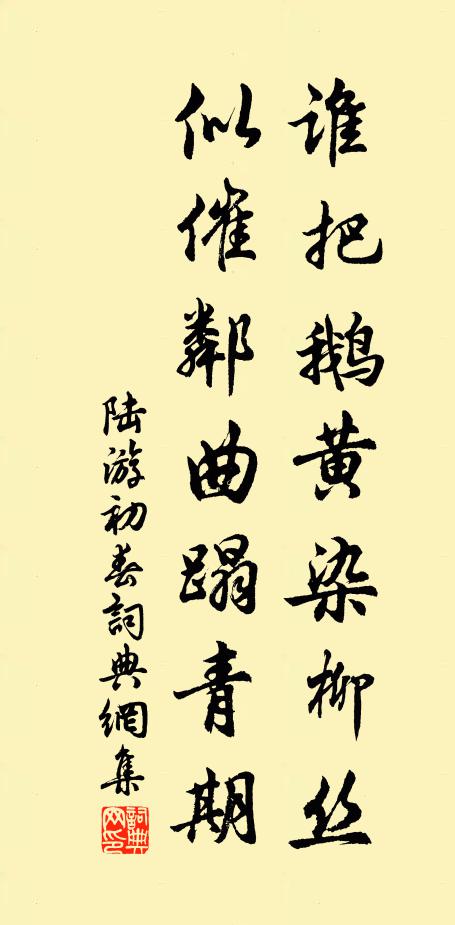 谁把鹅黄染柳丝
似催鄰曲蹋青期
陆游初春詞典網集
詞典網印